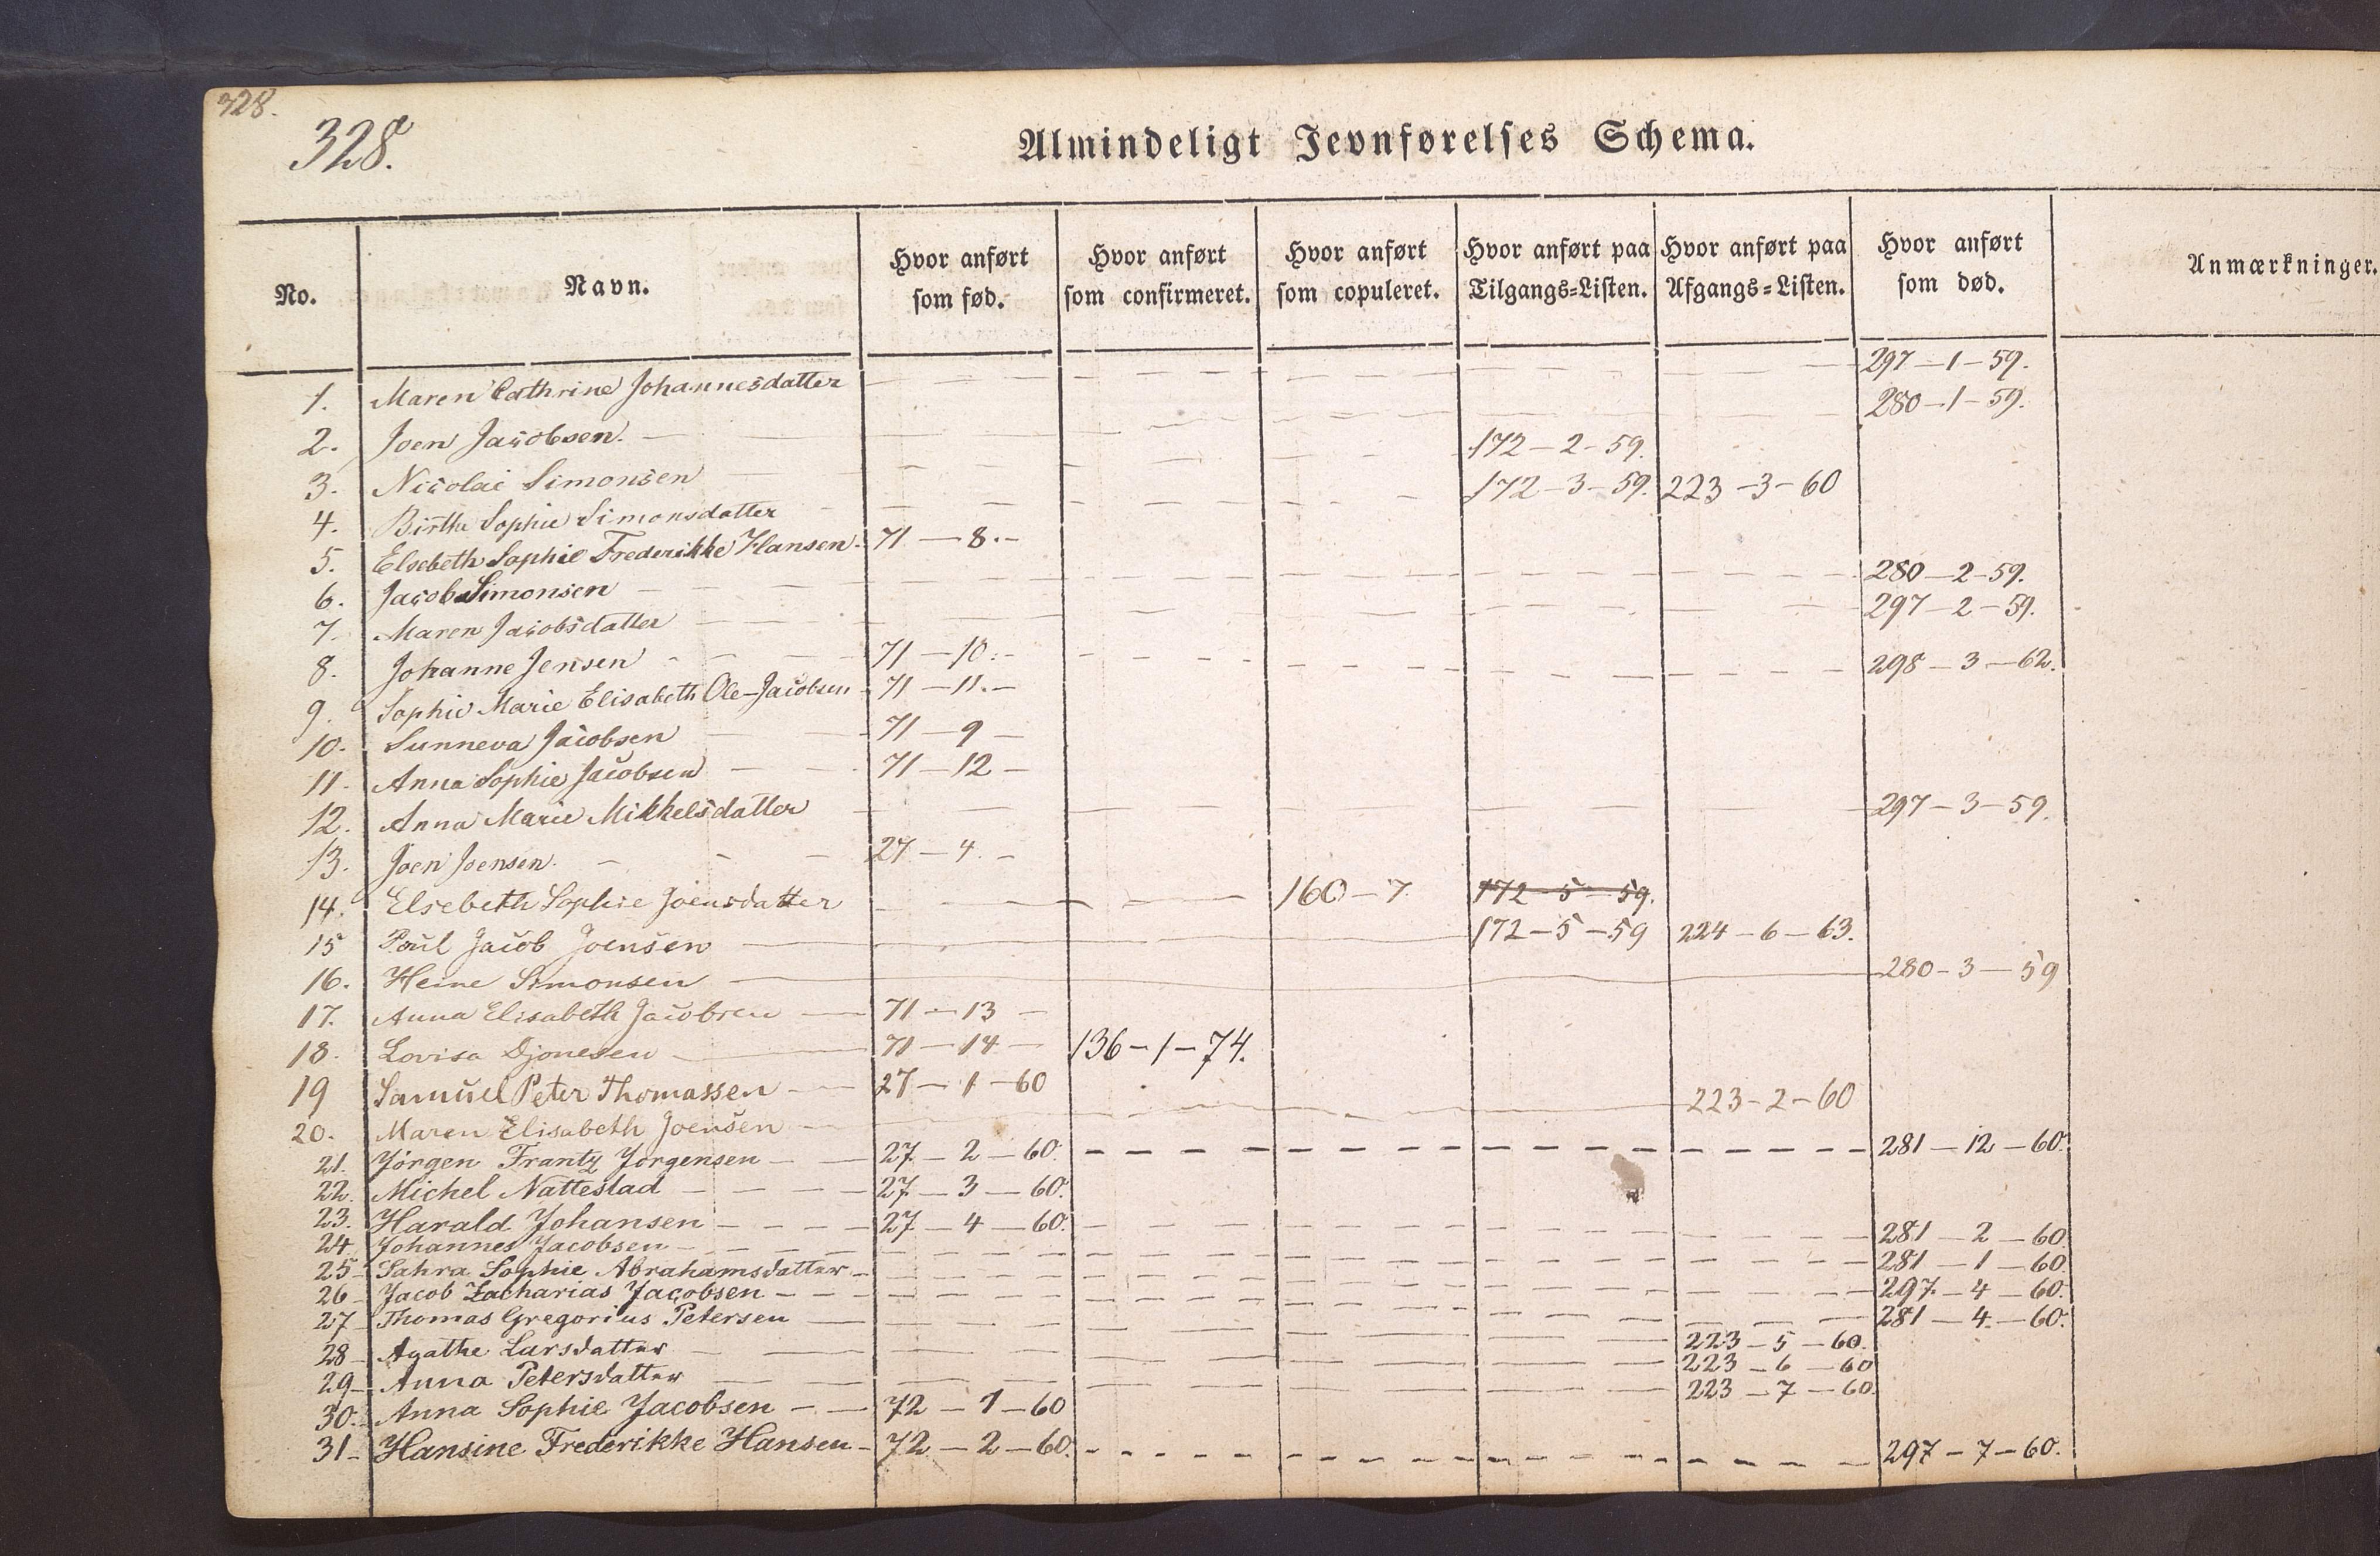 328.
328.
Almindeligt Jevnførelses Schema.
No. Navn. Hvor anført som fød. Hvor anført som confirmeret. Hvor anført som copuleret. Hvor anført paa Tilgangs=Listen. Hvor anført paa Afgangs=Listen. Hvor anført som død. Anmærkninger.
1. Maren Cathrine Johannesdatter 297-1-59.
2. Joen Jacobsen. 280-1-59.
3. Nicolai Simonsen 172-2-59.
4. Birthe Sophie Simonsdatter 172-3-59. 223-3-60
5. Elsebeth Sophie Frederikke Hansen 71-8.-
6. Jacob Simonsen 280-2-59.
7. Maren Jacobsdatter 297-2-59.
8. Johanne Jensen 71-10.- 298-3-62.
9. Sophie Marie Elisabeth Ole-Jacobsen 71-11.-
10. Sunneva Jacobsen 71-9-
11. Anna Sophie Jacobsen 71-12-
12. Anna Marie Mikkelsdatter 297-3-59.
13. Joen Joensen. 27-4.-
14. Elsebeth Sophie Joensdatter 160-7. 172-5-59.
15 Poul Jacob Joensen 172-5-59 224-6-63.
16. Heine Simonsen 280-3-59
17. Anna Elisabeth Jacobsen 71-13-
18. Lovisa Djonesen 71-14- 136-1-74.
19 Samuel Peter Thomassen 27-1-60
20. Maren Elisabeth Joensen 223-2-60
21. Jörgen Frantz Jörgensen 27-2-60. 281-12-60.
22. Michel Nattestad 27-3-60.
23. Harald Johansen 27-4-60. 281-2-60
24 Johannes Jacobsen 281-1-60.
25 Sahra Sophie Abrahamsdatter 297-4-60.
26 Jacob Zacharias Jacobsen 281-4-60.
27 Thomas Gregorius Petersen 223-5-60.
28 Agathe Larsdatter 223-6-60
29 Anna Petersdatter 223-7-60.
30. Anna Sophie Jacobsen 72-1-60
31 Hansine Frederikke Hansen 72-2-60. 297-7-60.